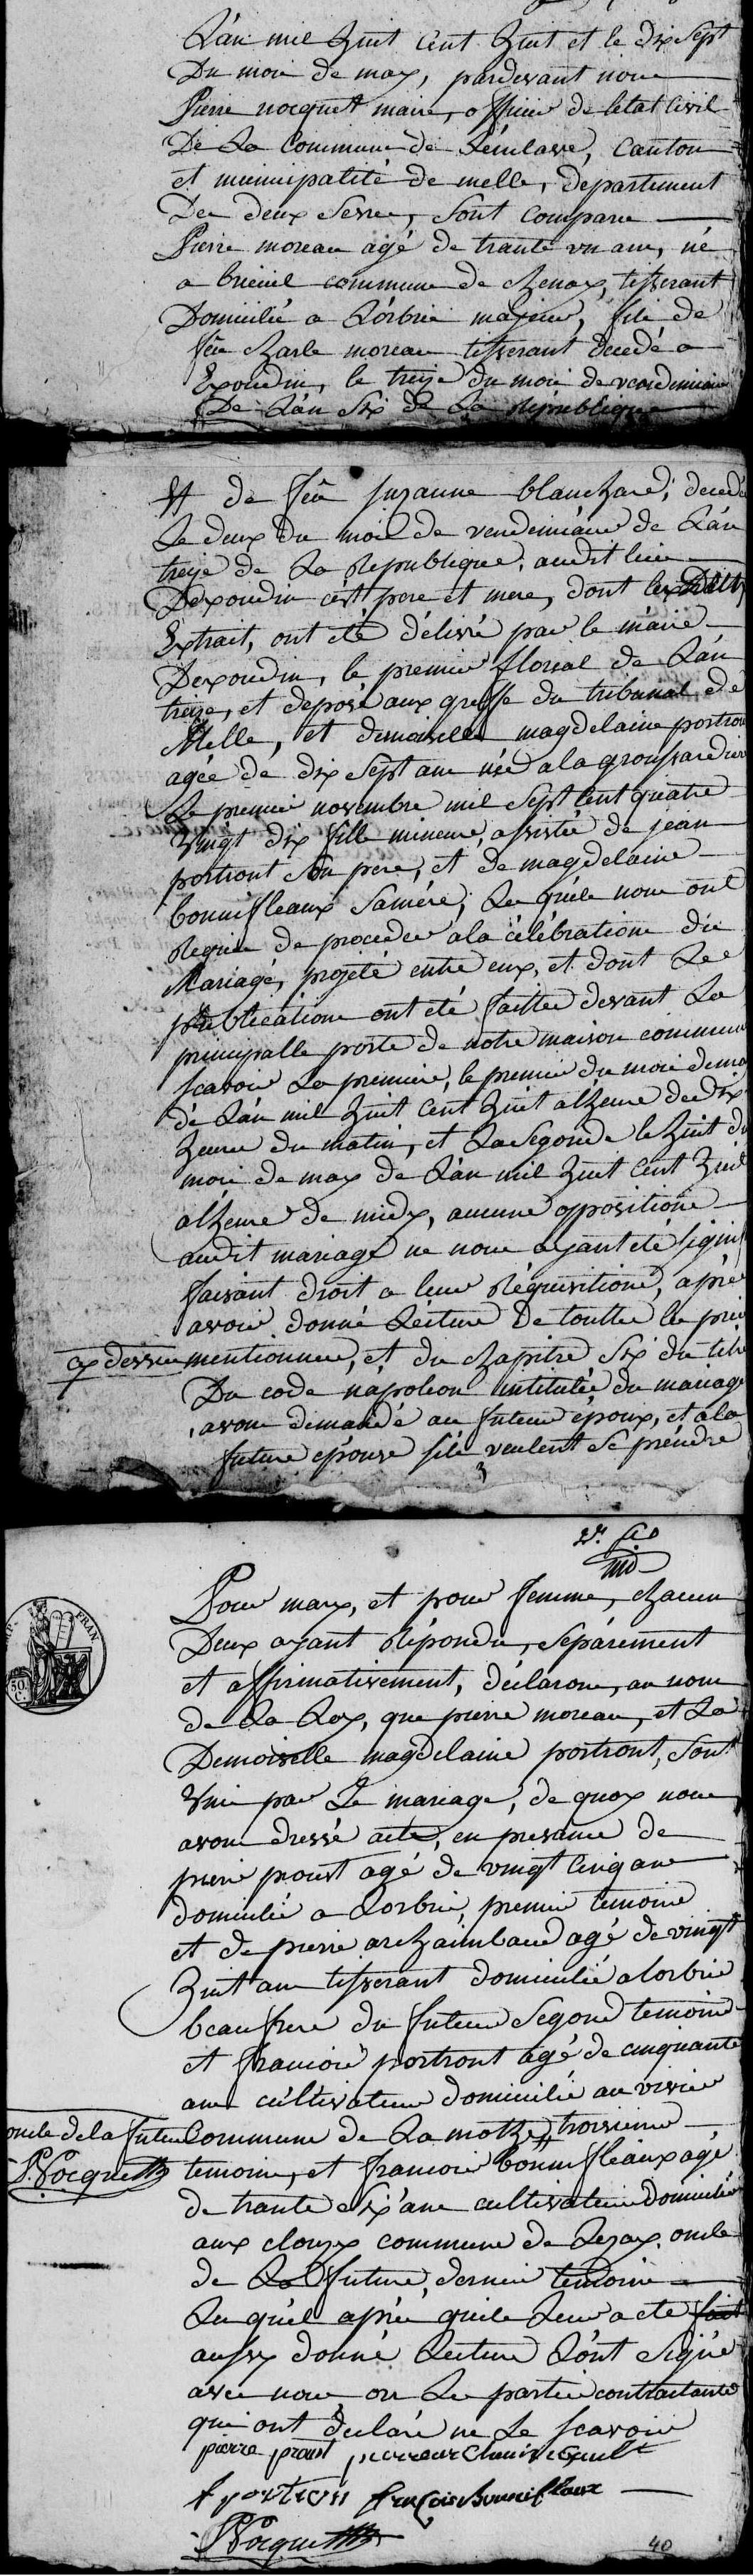 L'an mil huit cent huit et le dix sept
Du mois de may, pardevant nous
Pierre nocquet maire, officier de letat Civil
De La Commune de canton
et municipalité de melle, departement
Des deux Sevres, Sont Comparu
Pierre moreau agé de trante un ans, né
a brieuil commune de chenay, tisserant
Domicilié a Lorbrie majeur, fils de
feu charle moreau tisserant decedé a
Exoudin, le treize du mois de vendemiaire
De L'an Six de La Republique
Et de feu Suzanne blanchard, decedé
Le deux du mois de vendemiaire de L'an
treize de La Republique, audit lieu
Dexoudin ses pere et mere, dont les
Extrait, ont eté délivré par le maire
Dexoudin, le premier floréal de L'an
treize, et deposé aux greffe du tribunal de
Melle, et demoiselle magdelaine portron
agée de dix Sept ans née a la groussardiere
Le premier novembre mil Sept Cent quatre
vingt dix fille mineure, assistée de jean
portront Son pere, et de magdelaine
bonnifleaux Samére, Lesquels nous ont
Requis de proceder a la célébration du
Mariage, projeté entre eux, et dont Les
publications ont eté faittes devant La
principalle porte de notre maison commune
scavoir La premiere, le premier du mois de may
de L'an mil huit cent huit alheure de dix
heures du matin, et La Segonde le huit du
mois de may de L'an mil huit cent huit
alheure de midy, aucune opposition
audit mariage ne nous ayant eté signifi
faisant droit a leur Réquisition, aprés
avoir donné Lecture de touttes les pies
cy dessus mentionnees, et du chapitre Six du titre
Du code napoleon intitulée du mariage
avons demandé au futeur époux, et a la
future epouse sils veulent Se prendre
Pour mary, et pour femme, chacun
Deux ayant Répondu, Séparement
et affirmativement, déclarons, au nom
de La Loy, que pierre moreau, et La
Demoiselle magdelaine portront, Sont
Unis par Le mariage, de quoy nous
avons dressé acte, en presance de
pierre proust agé de vingt Cinq ans
domicilié a Lorbrie, premier temoins
et de pierre archaimbaud agé de vingt
huit ans tisserant domicilié a lorbrie
beaufrere du futeur Segond temoins
et francois portront agé de cinquante
ans cultivateur domicilié au vivier
oncle de la future Commune de La mothe, troisieme
P. Nocquet temoins, et francois bonnifleaux agé
de trante Six ans cultivateur domicilié
aux clouzy commune de Lezay, oncle
de La future, dernier temoins
Lesquels aprés quils Leurs a eté fait
aussy donné Lecture L'ont Signé
avec nous, on Les parties contractantes
qui ont declaré ne Le scavoir
pierre proust
f portron françois Bonnifleaux
P Nocquet
40